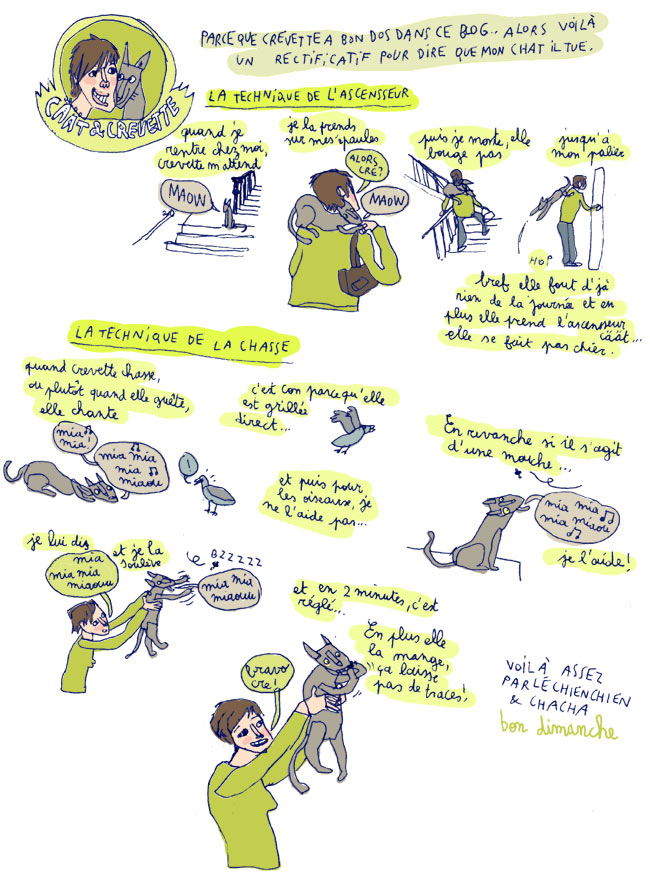 PARCE QUE CREVETTE A BON DOS DANS CE BLOG.. ALORS VOILÀ
UN RECTIFICATIF POUR DIRE QUE MON CHAT IL TUE.
CÄÄT & CREVETTE
LA TECHNIQUE DE L'ASCENSSEUR
quand je
rentre chez moi,
crevette m'attend
MAOW
je la prends
sur mes épaules
ALORS
CRE?
MAOW
puis je monte, elle
bouge pas
jusqu'à
mon palier
HOP
bref elle fout d'jà
rien de la journée et en
plus elle prend l'ascensseur
cäät...
elle se fait pas chier.
LA TECHNIQUE DE LA CHASSE
quand crevette chasse,
ou plutôt quand elle guête,
elle chante
mia
mia!
mia mia
mia mia
mia
miaou
c'est con parcequ'elle
est grillée
direct...
!
et puis pour
les oiseaux, je
ne l'aide pas...
En revanche si il s'agit
d'une mouche...
mia mia
mia miaou
mia
je l'aide!
je lui dis
mia
mia mia mia
miaouu
et je la
soulève
BZZZZZ
mia mia
miaouu
et en 2 minutes, c'est
réglé...
En plus elle
la mange,
ça laisse
pas de traces!
bravo
cre!
VOILÀ ASSEZ
PARLÉ CHIENCHIEN
& CHACHA
bon dimanche